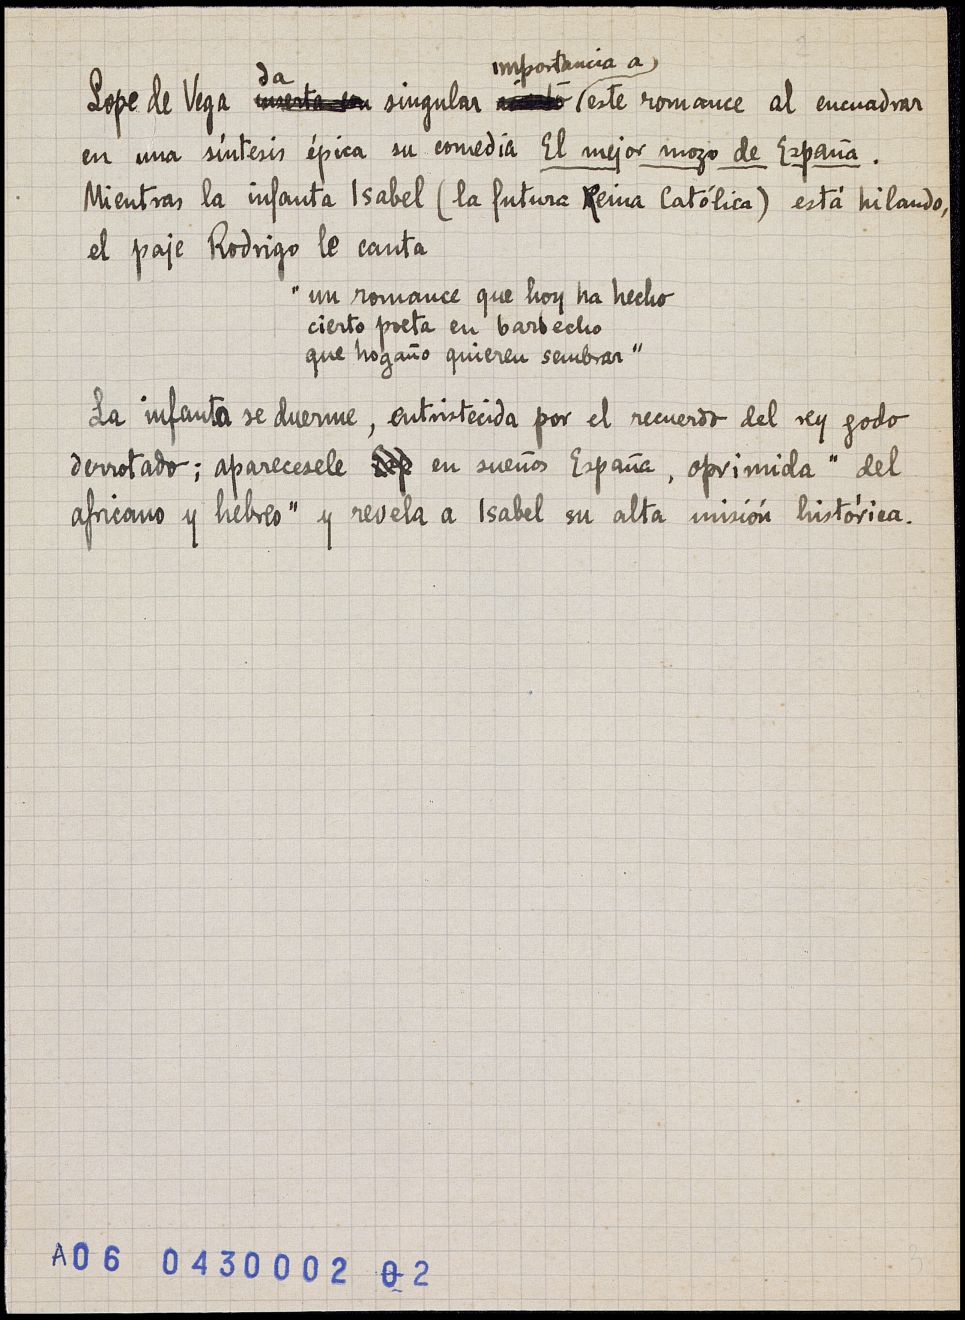 Lope de Vega da singular importancia a este romance al encuadrar
en una síntesis épica su comedia El mejor mozo de España.
Mientras la infanta Isabel (la futura Reina Católica) está hilando,
el paje Rodrigo le canta
"un romance que hoy ha hecho
cierto poeta en barbecho
que hogaño quieren sembrar"
La infanta se duerme, entristecida por el recuerdo del rey godo
derrotado; aparecesele en sueños España, oprimida "del
africano y hebreo" y revela a Isabel su alta misión histórica.
A06 0430002 02